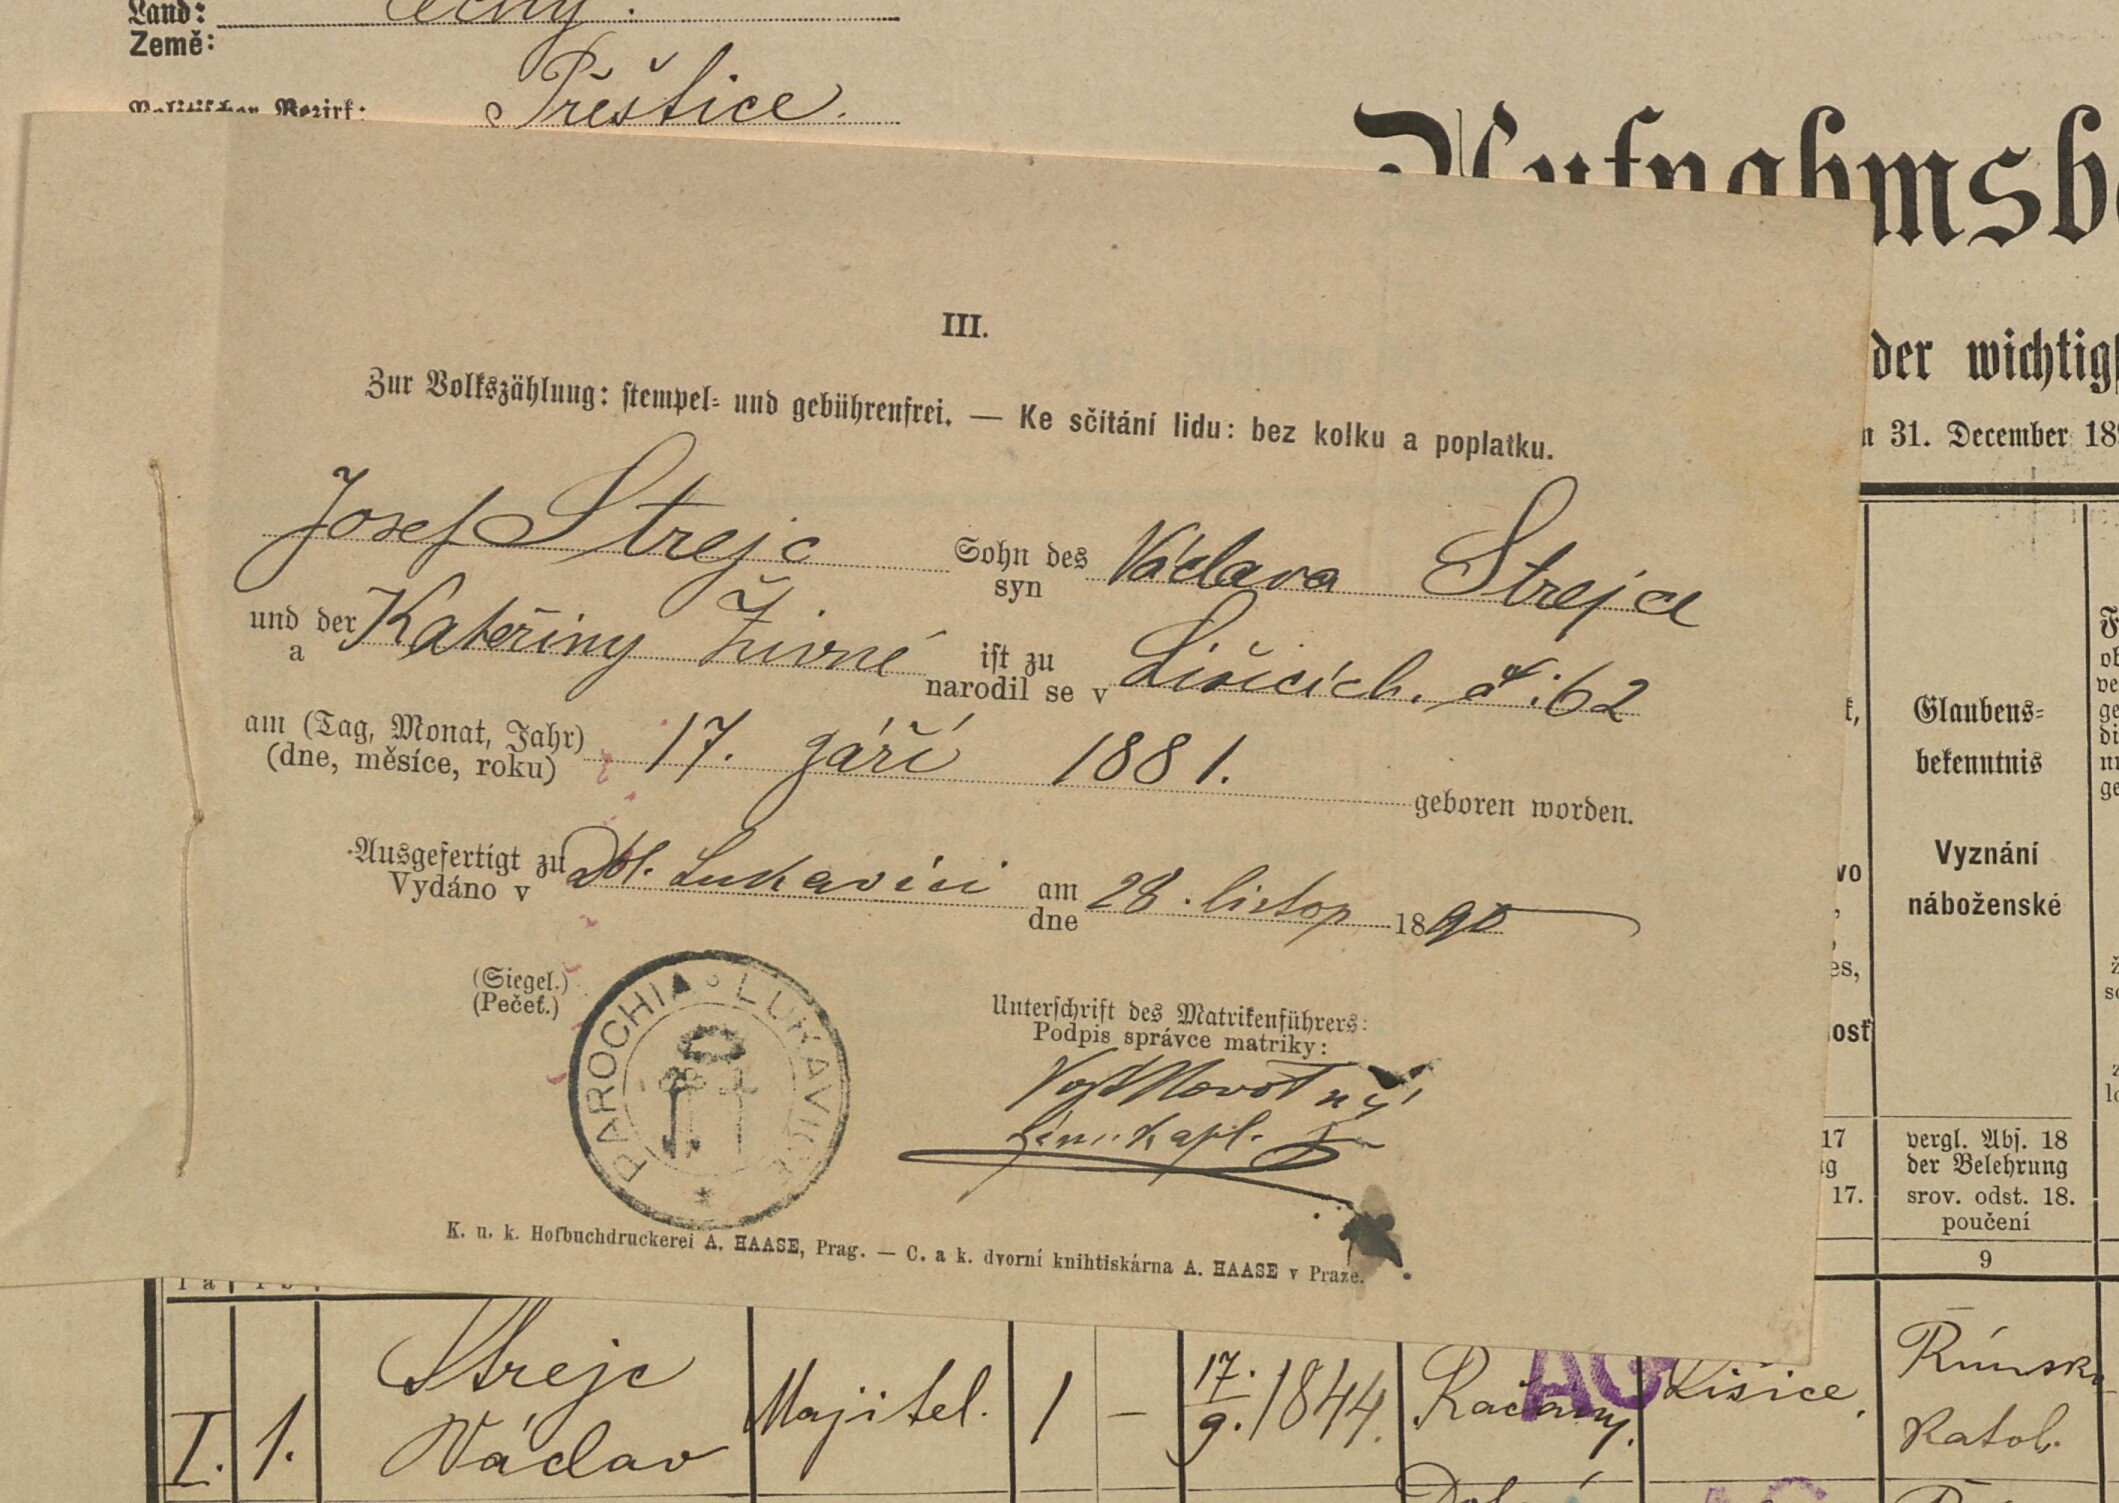 Land: Čechy.
Země:
Politischer Bezirk: Přeštice.
Aufnahmsb
der wichtigs
31. December 18
III.
Zur Volkszählung: stempel- und gebührenfrei. — Ke sčítání lidu: bez kolku a poplatku.
Josef Strejc Sohn des Václava Strejce
syn
und der Kateřiny Živné ist zu Lišicích. č: 62
a narodil se v
am (Tag, Monat, Jahr) 17. září 1881.
(dne, měsíce, roku) geboren worden.
Ausgefertigt zu Dol. Lukavici am 28. listop 1890
Vydáno v dne
(Siegel.)
(Pečeť.)
PAROCHIA LUKAVICE
Unterschrift des Matrikenführers:
Podpis správce matriky:
Vojt Novotný
kapl.
K. u. k. Hofbuchdruckerei A. HAASE, Prag. — C. a k. dvorní knihtiskárna A. HAASE v Praze.
Glaubens-
bekenntnis
Vyznání
náboženské
17 vergl. Abs. 18
der Belehrung
17. srov. odst. 18.
poučení
9
I. 1. Strejc Majitel. 1 — 17. 9. 1844. Račany. Lišice. Římsk
Václav Katol.
AG